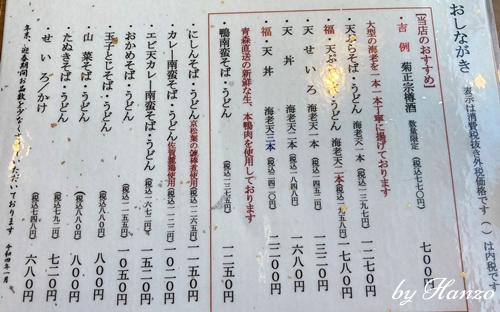 おしながき 表示は消費税抜き外税価格です ( )は内税です
【当店のおすすめ】
・吉例 菊正宗樽酒 数量限定 (税込七七〇円) 七〇〇円
大型の海老を一本一本丁寧に揚げております
・天ぷらそば・うどん 海老天一本 (税込一三九七円) 一二七〇円
・福・天ぷら・うどん 海老天二本 (税込一九五八円) 一七八〇円
・天せいろ 海老天一本 (税込一四五二円) 一三二〇円
・天丼 海老天二本 (税込一八四八円) 一六八〇円
・福・天丼 海老天三本 (税込二四二〇円) 二二〇〇円
青森直送の新鮮な生、本鴨肉を使用しております
・鴨南蛮そば・うどん (税込一三七五円) 一二五〇円
・にしんそば・うどん 京松葉の鰊棒煮使用 (税込一二六五円) 一一五〇円
・カレー南蛮そば・うどん 佐賀麓鶏使用 (税込一一二二円) 一〇二〇円
・エビ天カレー南蛮そば・うどん (税込一六七二円) 一五二〇円
・おかめそば・うどん (税込一一五五円) 一〇五〇円
・玉子とじそば・うどん (税込八八〇円) 八〇〇円
・山菜そば・うどん (税込八八〇円) 八〇〇円
・たぬきそば・うどん (税込七九二円) 七二〇円
・せいろ/かけ (税込七四八円) 六八〇円
年末、迎春期間お品数を少なく いただいております 令和四年一月
by Hanzo